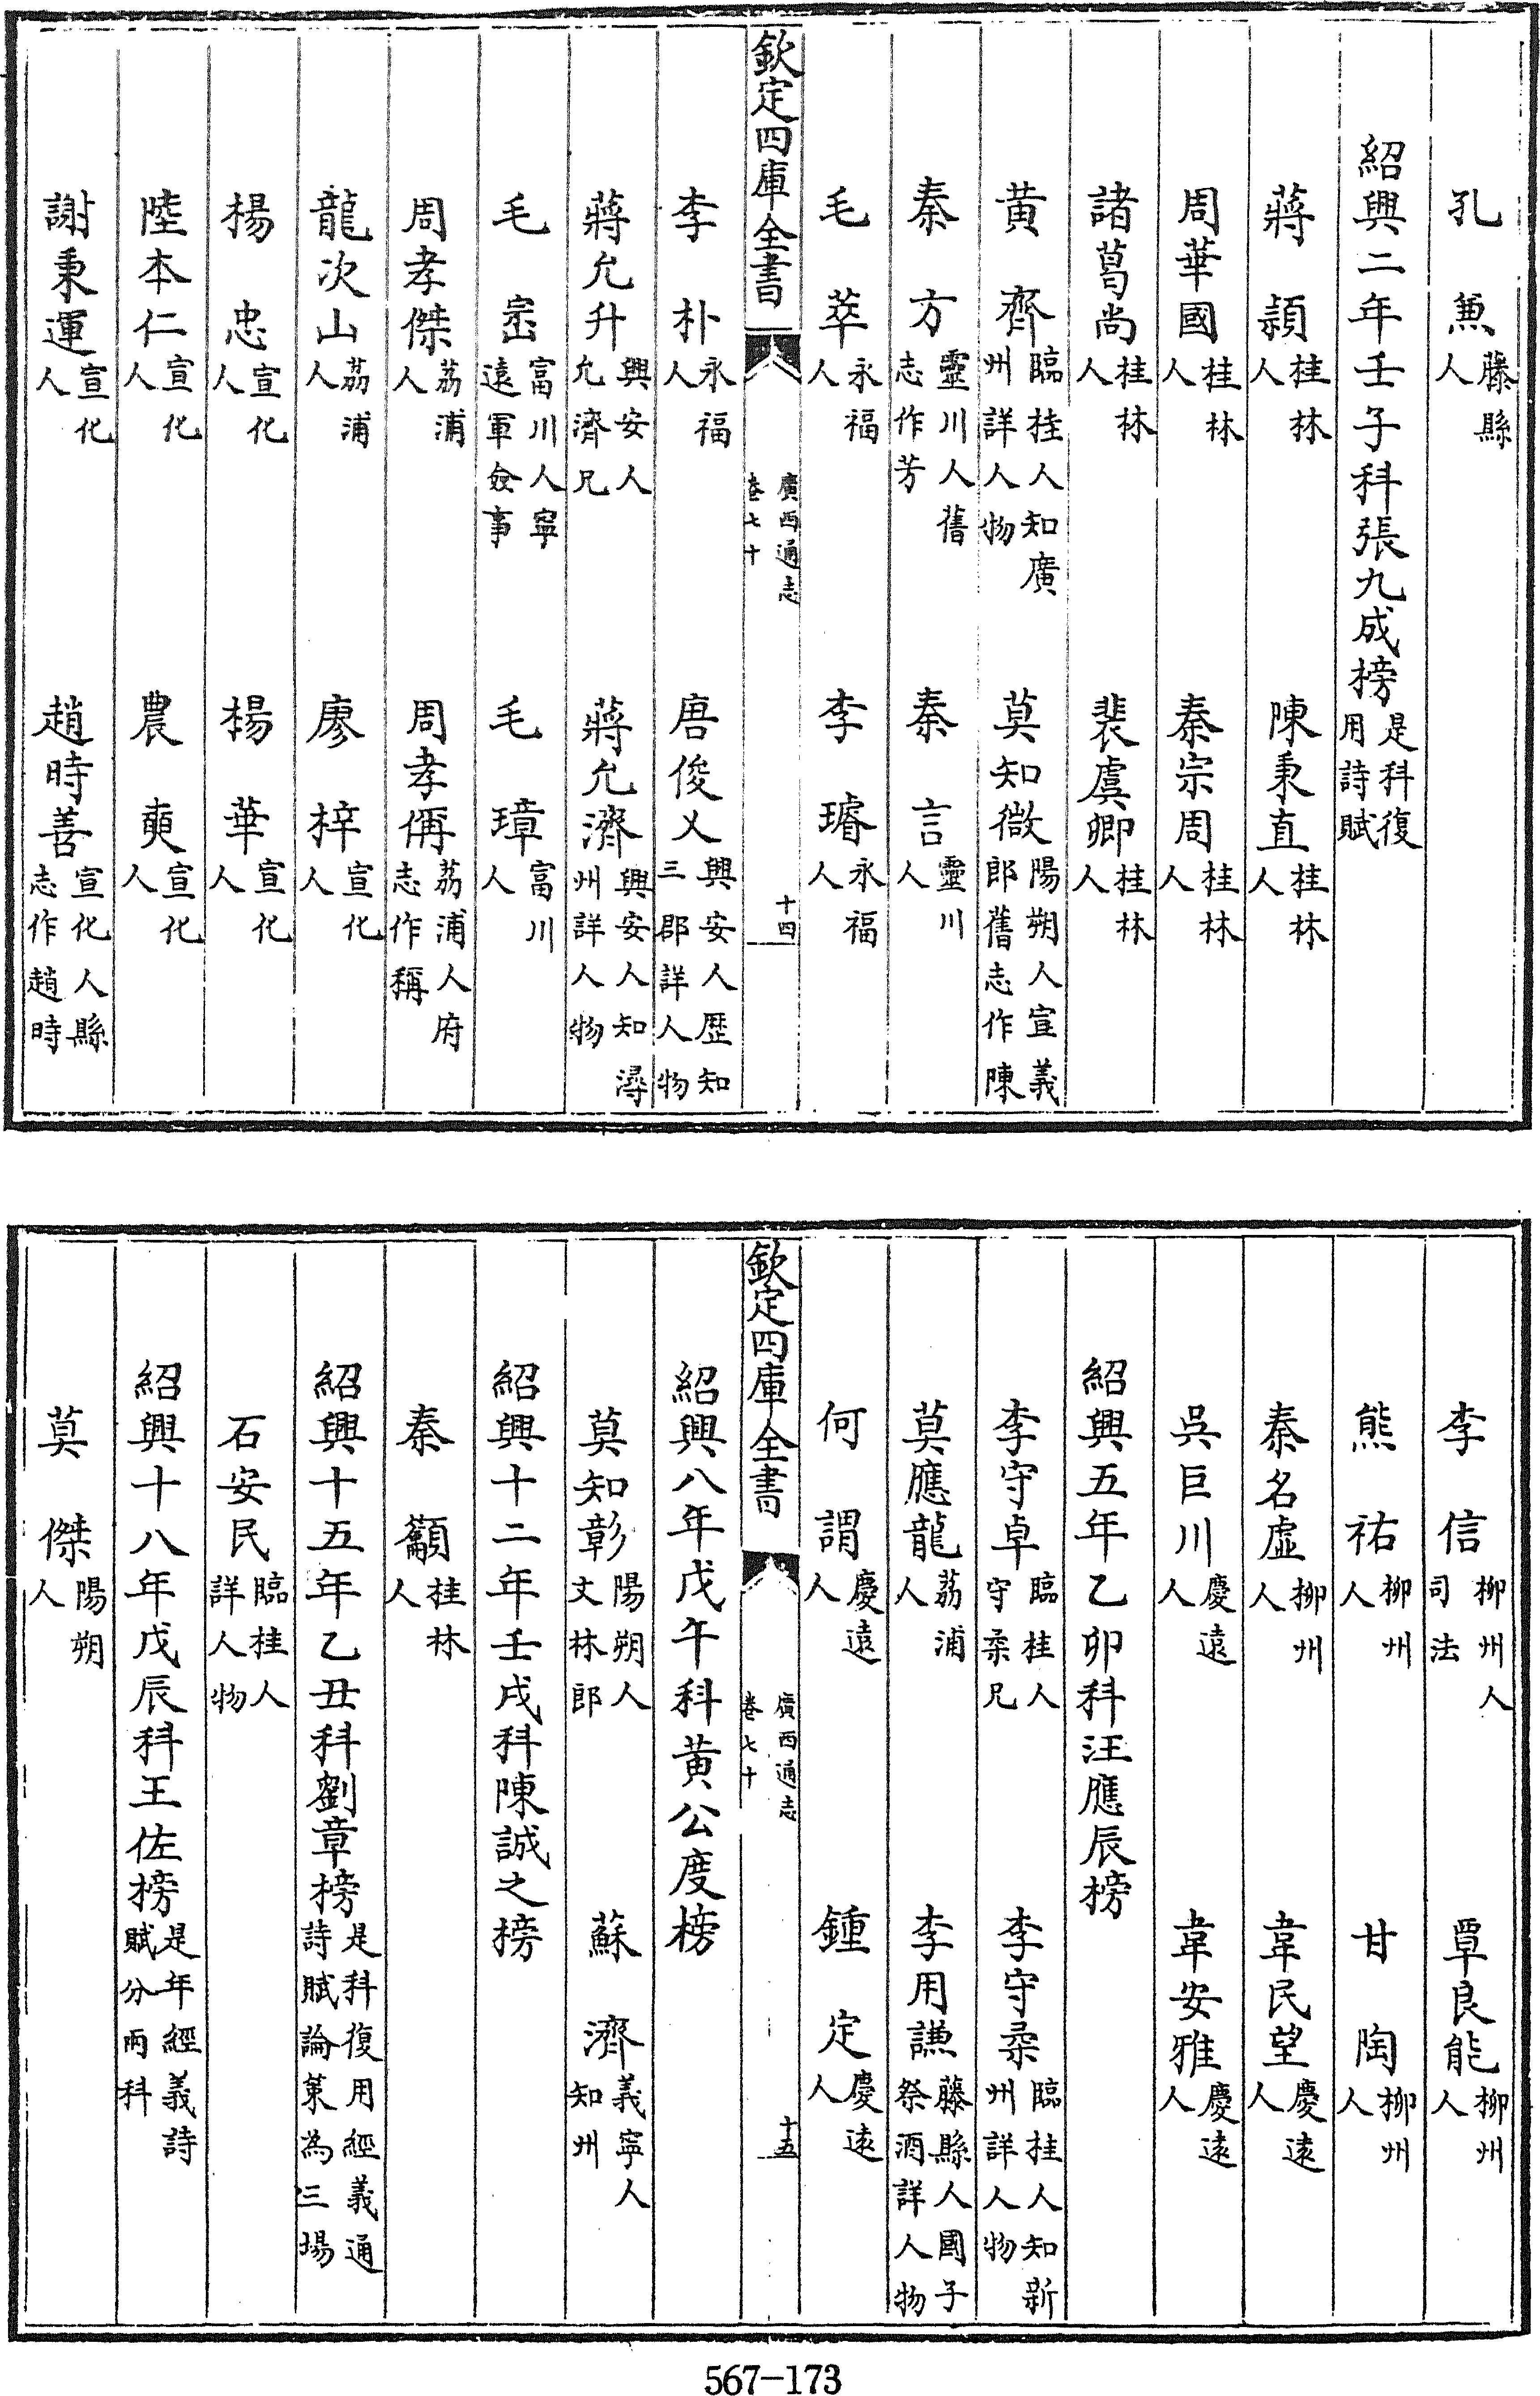 孔　兼藤縣人
紹興二年壬子科張九成榜是科復用詩賦
蔣　頴桂林人　陳秉直桂林人
周華國桂林人　秦宗周桂林人
諸葛尚桂林人　裴虞卿桂林人
黄　齊臨桂人知廣州詳人物　莫知微陽朔人宣義郎舊志作陳
秦　方靈川人舊志作芳　秦　言靈川人
毛　萃永福人　李　璿永福人
欽定四庫全書　廣西通志卷七十　十四
李　朴永福人　唐俊乂興安人歴知三郡詳人物
蔣允升興安人允濟兄　蔣允濟興安人知潯州詳人物
毛　富川人寧遠軍僉事　毛　璋富川人
周孝傑荔浦人　周孝偁荔浦人府志作稱
龍次山荔浦人　廖　梓宣化人
楊　忠宣化人　楊　華宣化人
陸本仁宣化人　農　奭宣化人
謝秉運宣化人　趙時善宣化人縣志作趙時
李　信柳州人司法　覃良能柳州人
熊　祐柳州人　甘　陶柳州人
秦名虛柳州人　韋民望慶逺人
吳巨川慶逺人　韋安雅慶逺人
紹興五年乙卯科汪應辰榜
李守卓臨桂人守柔兄　李守柔臨桂人知新州詳人物
莫應龍荔浦人　李用謙藤縣人國子祭酒詳人物
何　謂慶逺人　鍾　定慶逺人
欽定四庫全書　廣西通志卷七十　十五
紹興八年戊午科黄公度榜
莫知彰陽朔人文林郎　蘇　濟義寧人知州
紹興十二年壬戌科陳誠之榜
秦　籲桂林人
紹興十五年乙丑科劉章榜是科復用經義通詩賦論策為三場
石安民臨桂人詳人物
紹興十八年戊辰科王佐榜是年經義詩賦分兩科
莫　傑陽朔人
567-173